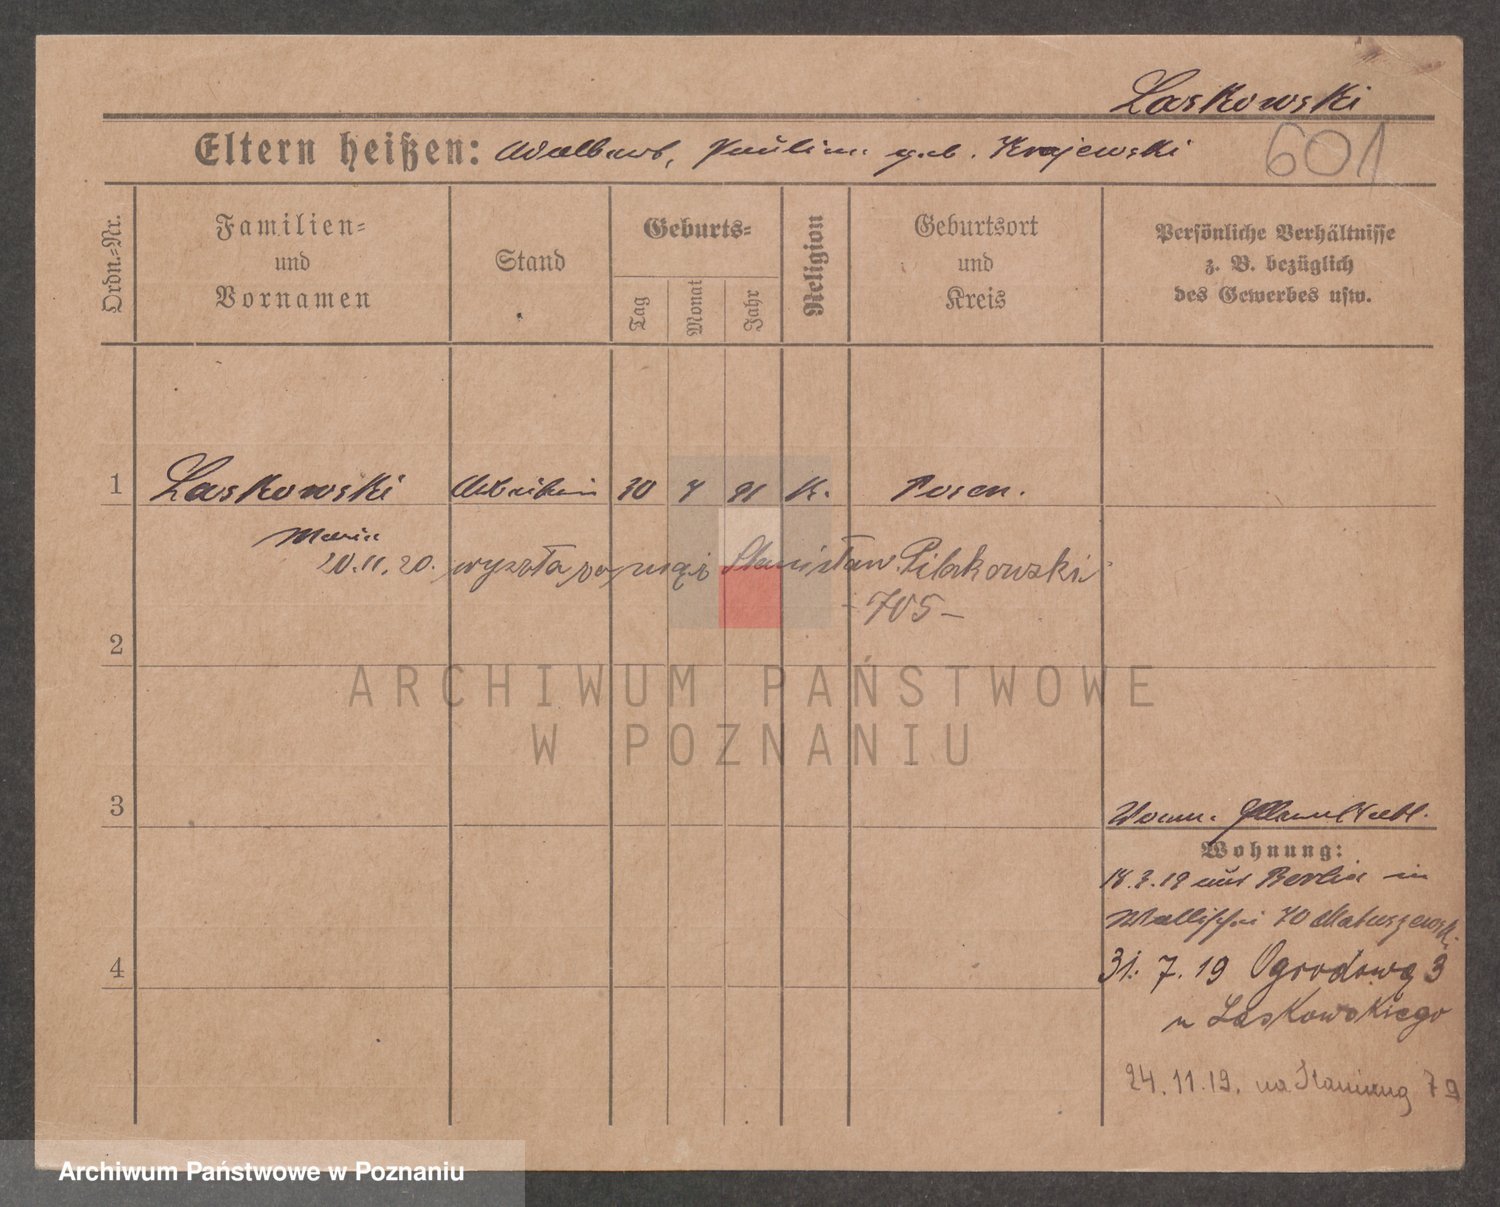 Laskowski
601
Eltern heißen: Adalbert, Paulina geb. Krajewski
Ordn.=Nr.
Familien=
und
Vornamen
Stand
Geburts=
Tag
Monat
Jahr
Religion
Geburtsort
und
Kreis
Persönliche Verhältnisse
z. B. bezüglich
des Gewerbes usw.
1 Laskowski Arbeiterin 30 7 91 K. Posen.
Maria
20.11.20. wyszła za mąż Stanisław Pilakowski
- 705 -
2
ARCHIWUM PAŃSTWOWE
W POZNANIU
3
Wohnung:
18.3.19 aus Berlin in
Wallischei 70 Matuszewski
4
31. 7. 19 Ogrodowa 3
u Laskowskiego
24.11.19. na 79
Archiwum Państwowe w Poznaniu